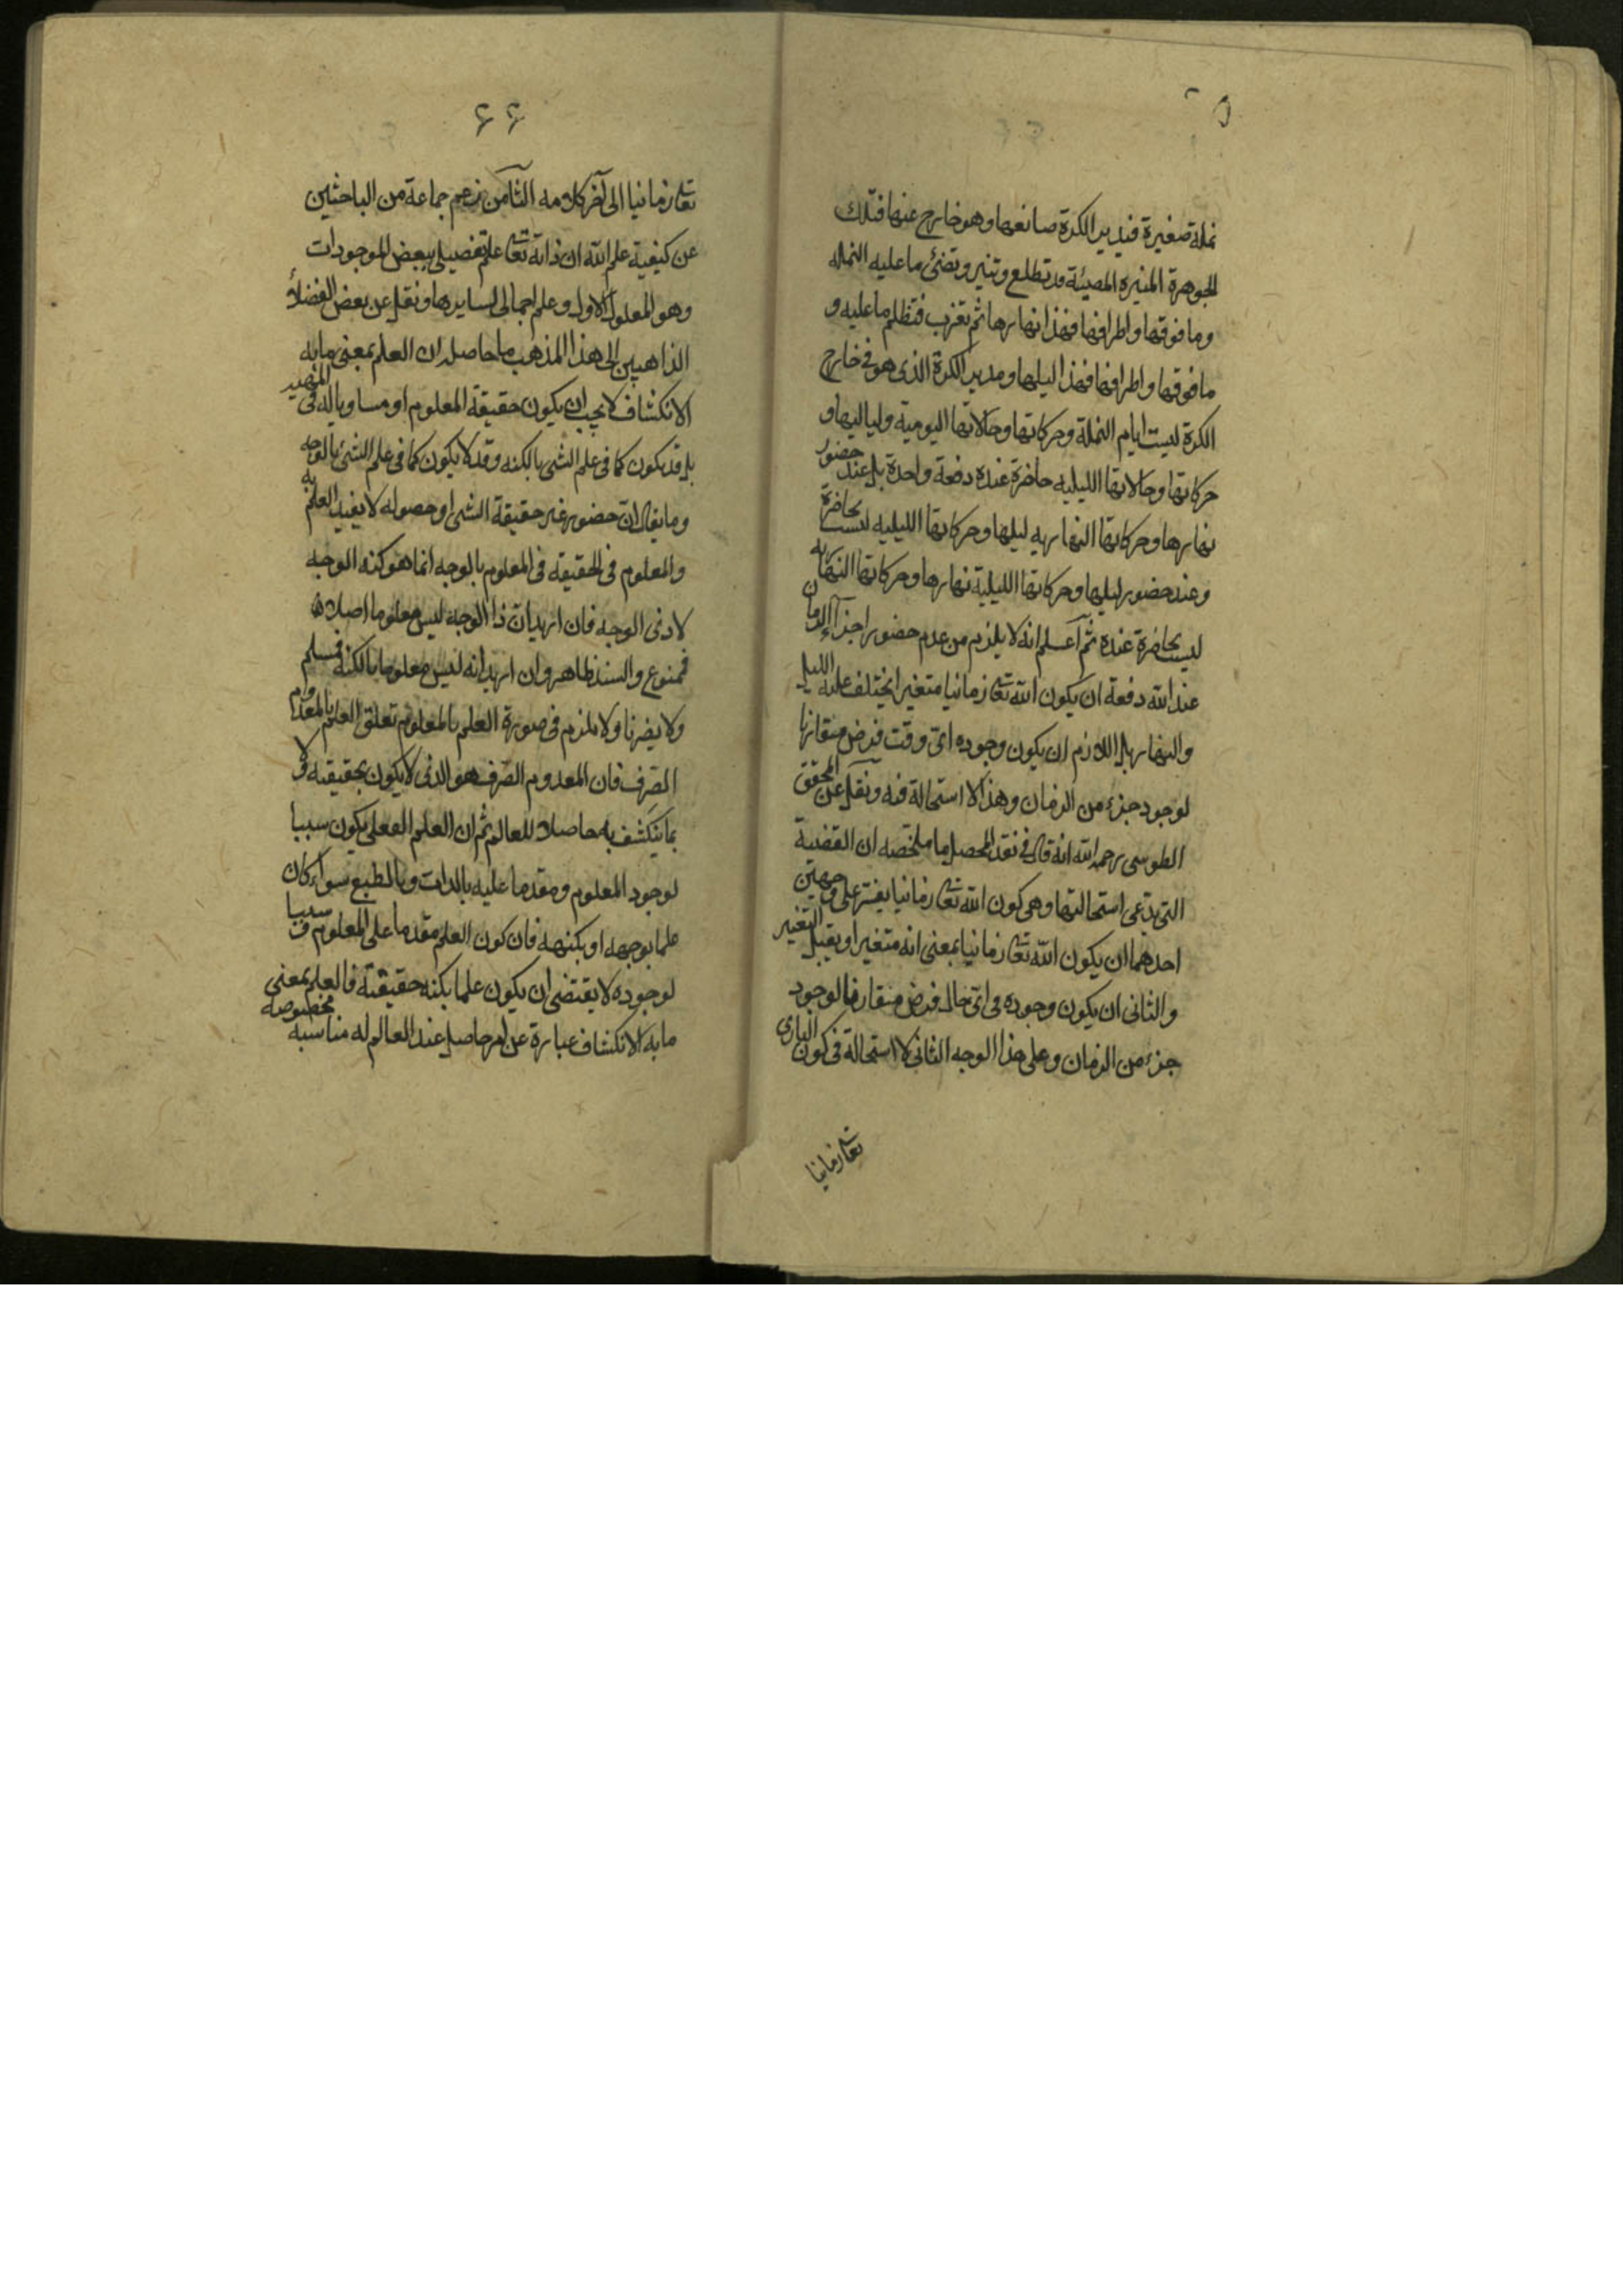 نملة صغيرة فيدير الكرة صانعها وهو خارج عنها فتلك
الجوهرة المنيرة المضيئة قد تطلع وتنير وتضئ ما عليه النملة
وما فوقها واطرافها فهذا نهارها ثم تغرب فتظلم ما عليه و
ما فوقها واطرافها فهذا ليلها ومدير الكرة الذى هو فى خارج
الكرة ليست ايام النملة وحركاتها وحالاتها اليومية ولياليها و
حركاتها وحالاتها الليليه حاضرة عنده دفعة واحدة بل عند حضور
نهارها وحركاتها النهاريه ليلها وحركاتها الليليه ليست بحاضرة
وعند حضور ليلها وحركاتها الليلية نهارها وحركاتها النهاريه
ليست بحاضرة عنده ثم اعلم انه لا يلزم من عدم حضور اجزاء الزمان
عند الله دفعة ان يكون الله تعا زمانيا متغيرا يختلف عليه الليل
والنهار بل اللازم ان يكون وجوده اى وقت فرض مقارنا
لوجود جزء من الزمان وهذا لا استحالة فيه ونقل عن المحقق
الطوسى رحمه الله انه قال فى نقد المحصل ما ملخصه ان القضية
التى يدعى استحالتها وهى كون الله تعا زمانيا يفسر على وجهين
احدهما ان يكون الله تعا زمانيا بمعنى انه متغير او يقبل التغير
والثانى ان يكون وجوده فى اى حال فرض مقارنا لوجود
جزء من الزمان وعلى هذا الوجه الثانى لا استحالة فى كون البارى
تعا زمانيا
۶۶
تعا زمانيا الى آخر كلامه الثامن زعم جماعة من الباحثين
عن كيفية علم الله ان ذاته تعا علم تفصيلى ببعض الموجودات
وهو المعلول الاول وعلم اجمالى لسايرها ونقل عن بعض الفضلاء
الذاهبين الى هذا المذهب ما حاصله ان العلم بمعنى ما به
الانكشاف لا يجب ان يكون حقيقة المعلوم او مساويا له فى
بل قد يكون كما فى علم الشئ بالكنه وقد لا يكون كما فى علم الشئ بالوجه
وما يقال ان حضور غير حقيقة الشئ او حصوله لا يفيد العلم به
والمعلوم فى الحقيقة فى المعلوم بالوجه انما هو كنه الوجه
لا ذى الوجه فان اريد ان ذا الوجه ليس معلوما اصلا
فممنوع والسند ظاهر وان اريد انه ليس معلوما بالكنه فمسلم
ولا يضرنا ولا يلزم فى صورة العلم بالمعلوم تعلق العلم بالمعدوم
الصرف فان المعدوم الصرف هو الذى لا يكون بحقيقته ولا
بما ينكشف به حاصلا للعالم ثم ان العلم الفعلى يكون سببا
لوجود المعلوم ومقدما عليه بالذات وبالطبع سواء كان
علما بوجهه او بكنهه فان كون العلم مقدما على المعلوم وسببا
لوجوده لا يقتضى ان يكون علما بكنه حقيقته فالعلم بمعنى
ما به الانكشاف عبارة عن امر حاصل عند العالم له مناسبة مخصوصة